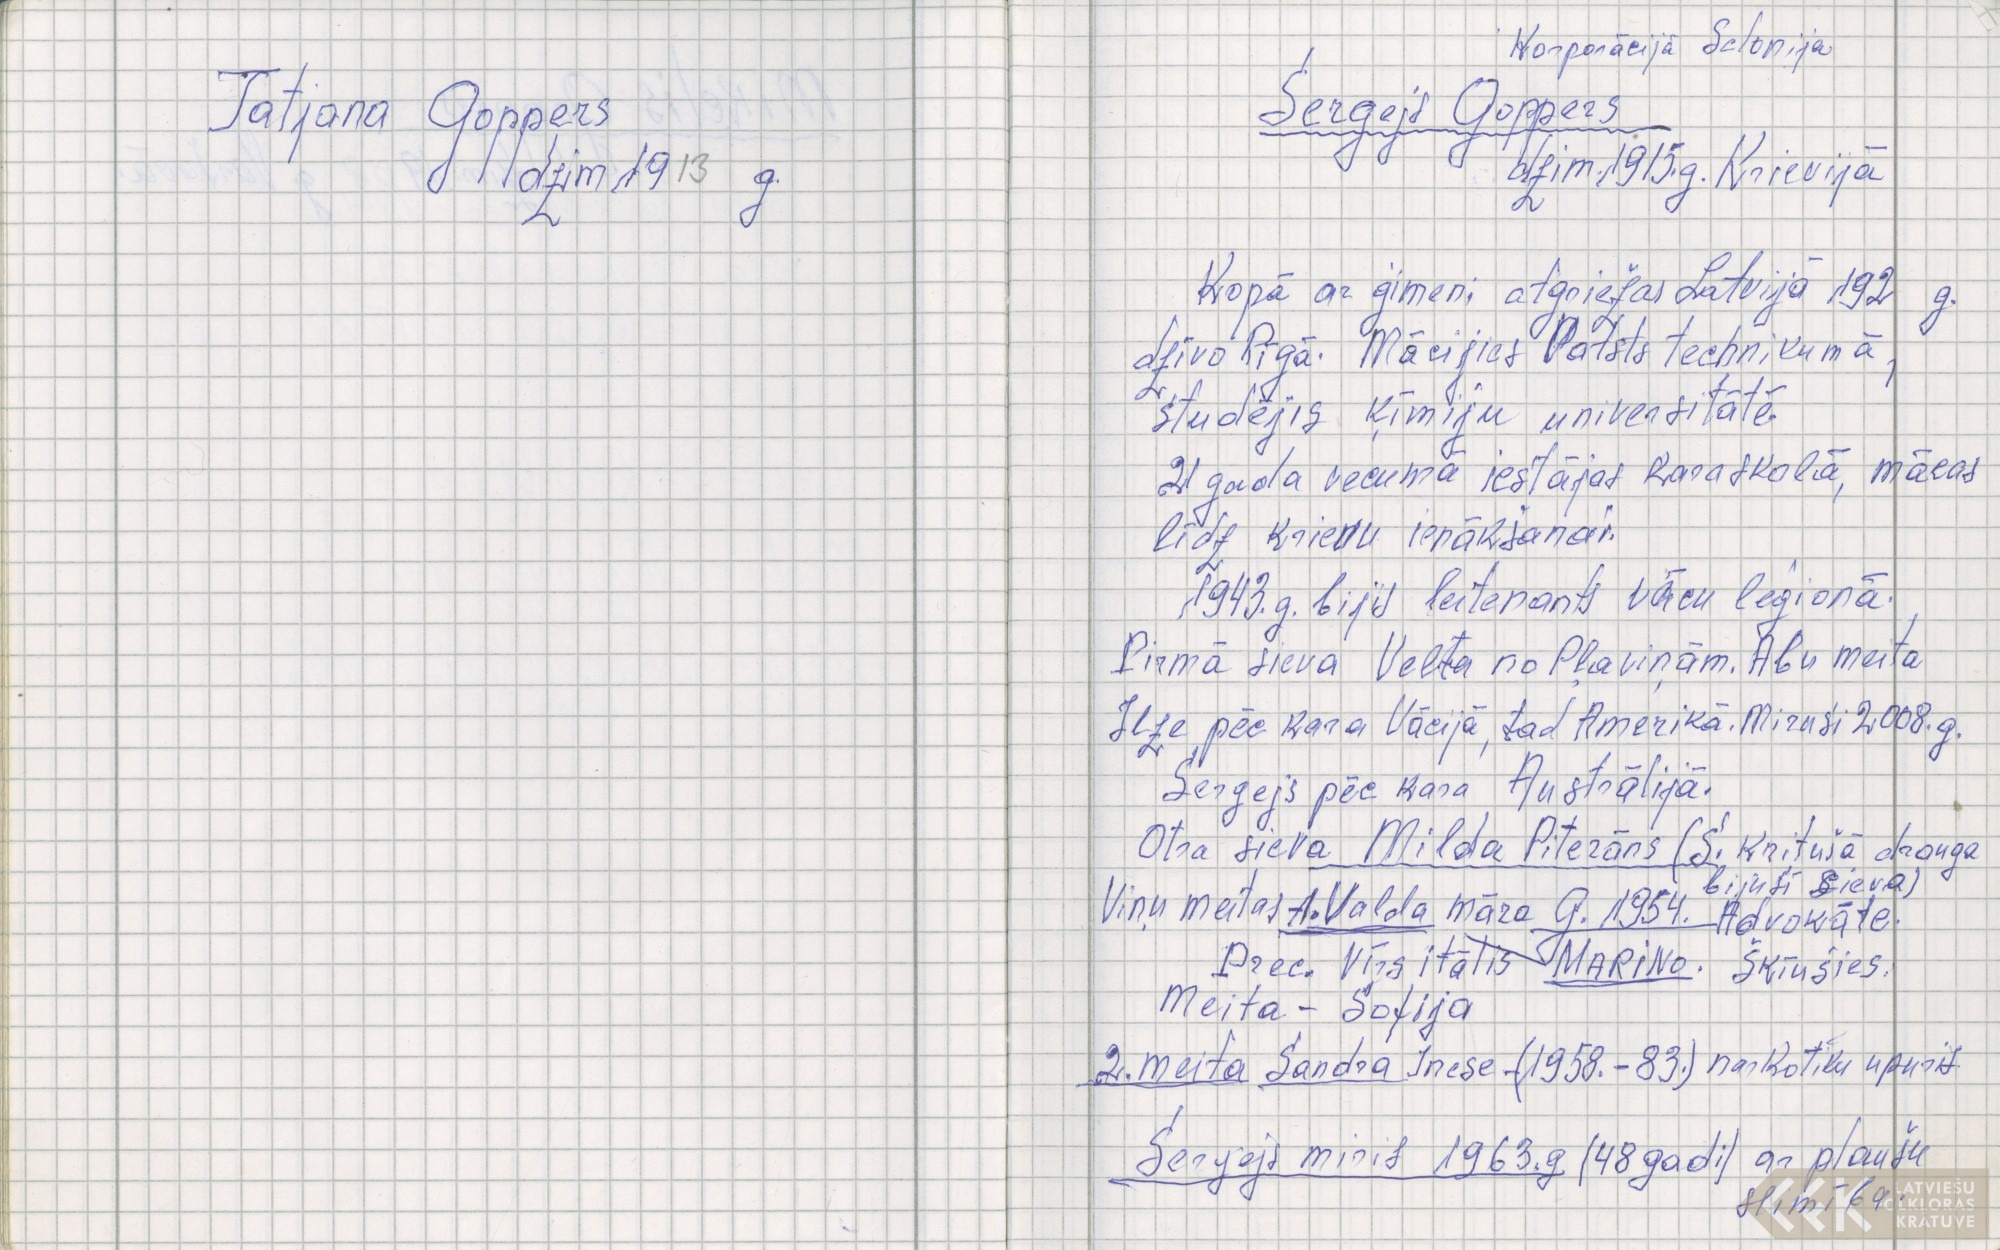 Tatjana Goppers
dzim. 1913 g.
Korporācijā Selonija
Sergejs Goppers
dzim. 1915. g. Krievijā
Kopā ar ģimeni atgriežas Latvijā 192 g.
dzīvo Rīgā. Mācijies Valsts technikumā,
studējis ķīmiju universitātē.
21 gada vecumā iestājas Karaskolā, mācas
līdz krievu ienākšanai.
1943. g. bijis leitenants vācu leģionā.
Pirmā sieva Velta no Pļaviņām. Abu meita
Ilze pēc kara Vācijā, tad Amerikā. Mirusi 2008. g.
Sergejs pēc kara Austrālijā.
Otra sieva Milda Piterāns (S. kritušā drauga
bijusī sieva)
Viņu meitas 1. Valda māra G. 1954. Advokāte.
Prec. Vīrs itālis MARINO. Šķīrušies.
Meita - Sofija
2. meita Sandra Inese - (1958. - 83.) narkotiku upuris
Sergejs miris 1963. g (48 gadi) ar plaušu
slimību.
LATVIEŠU
FOLKLORAS
KRĀTUVE